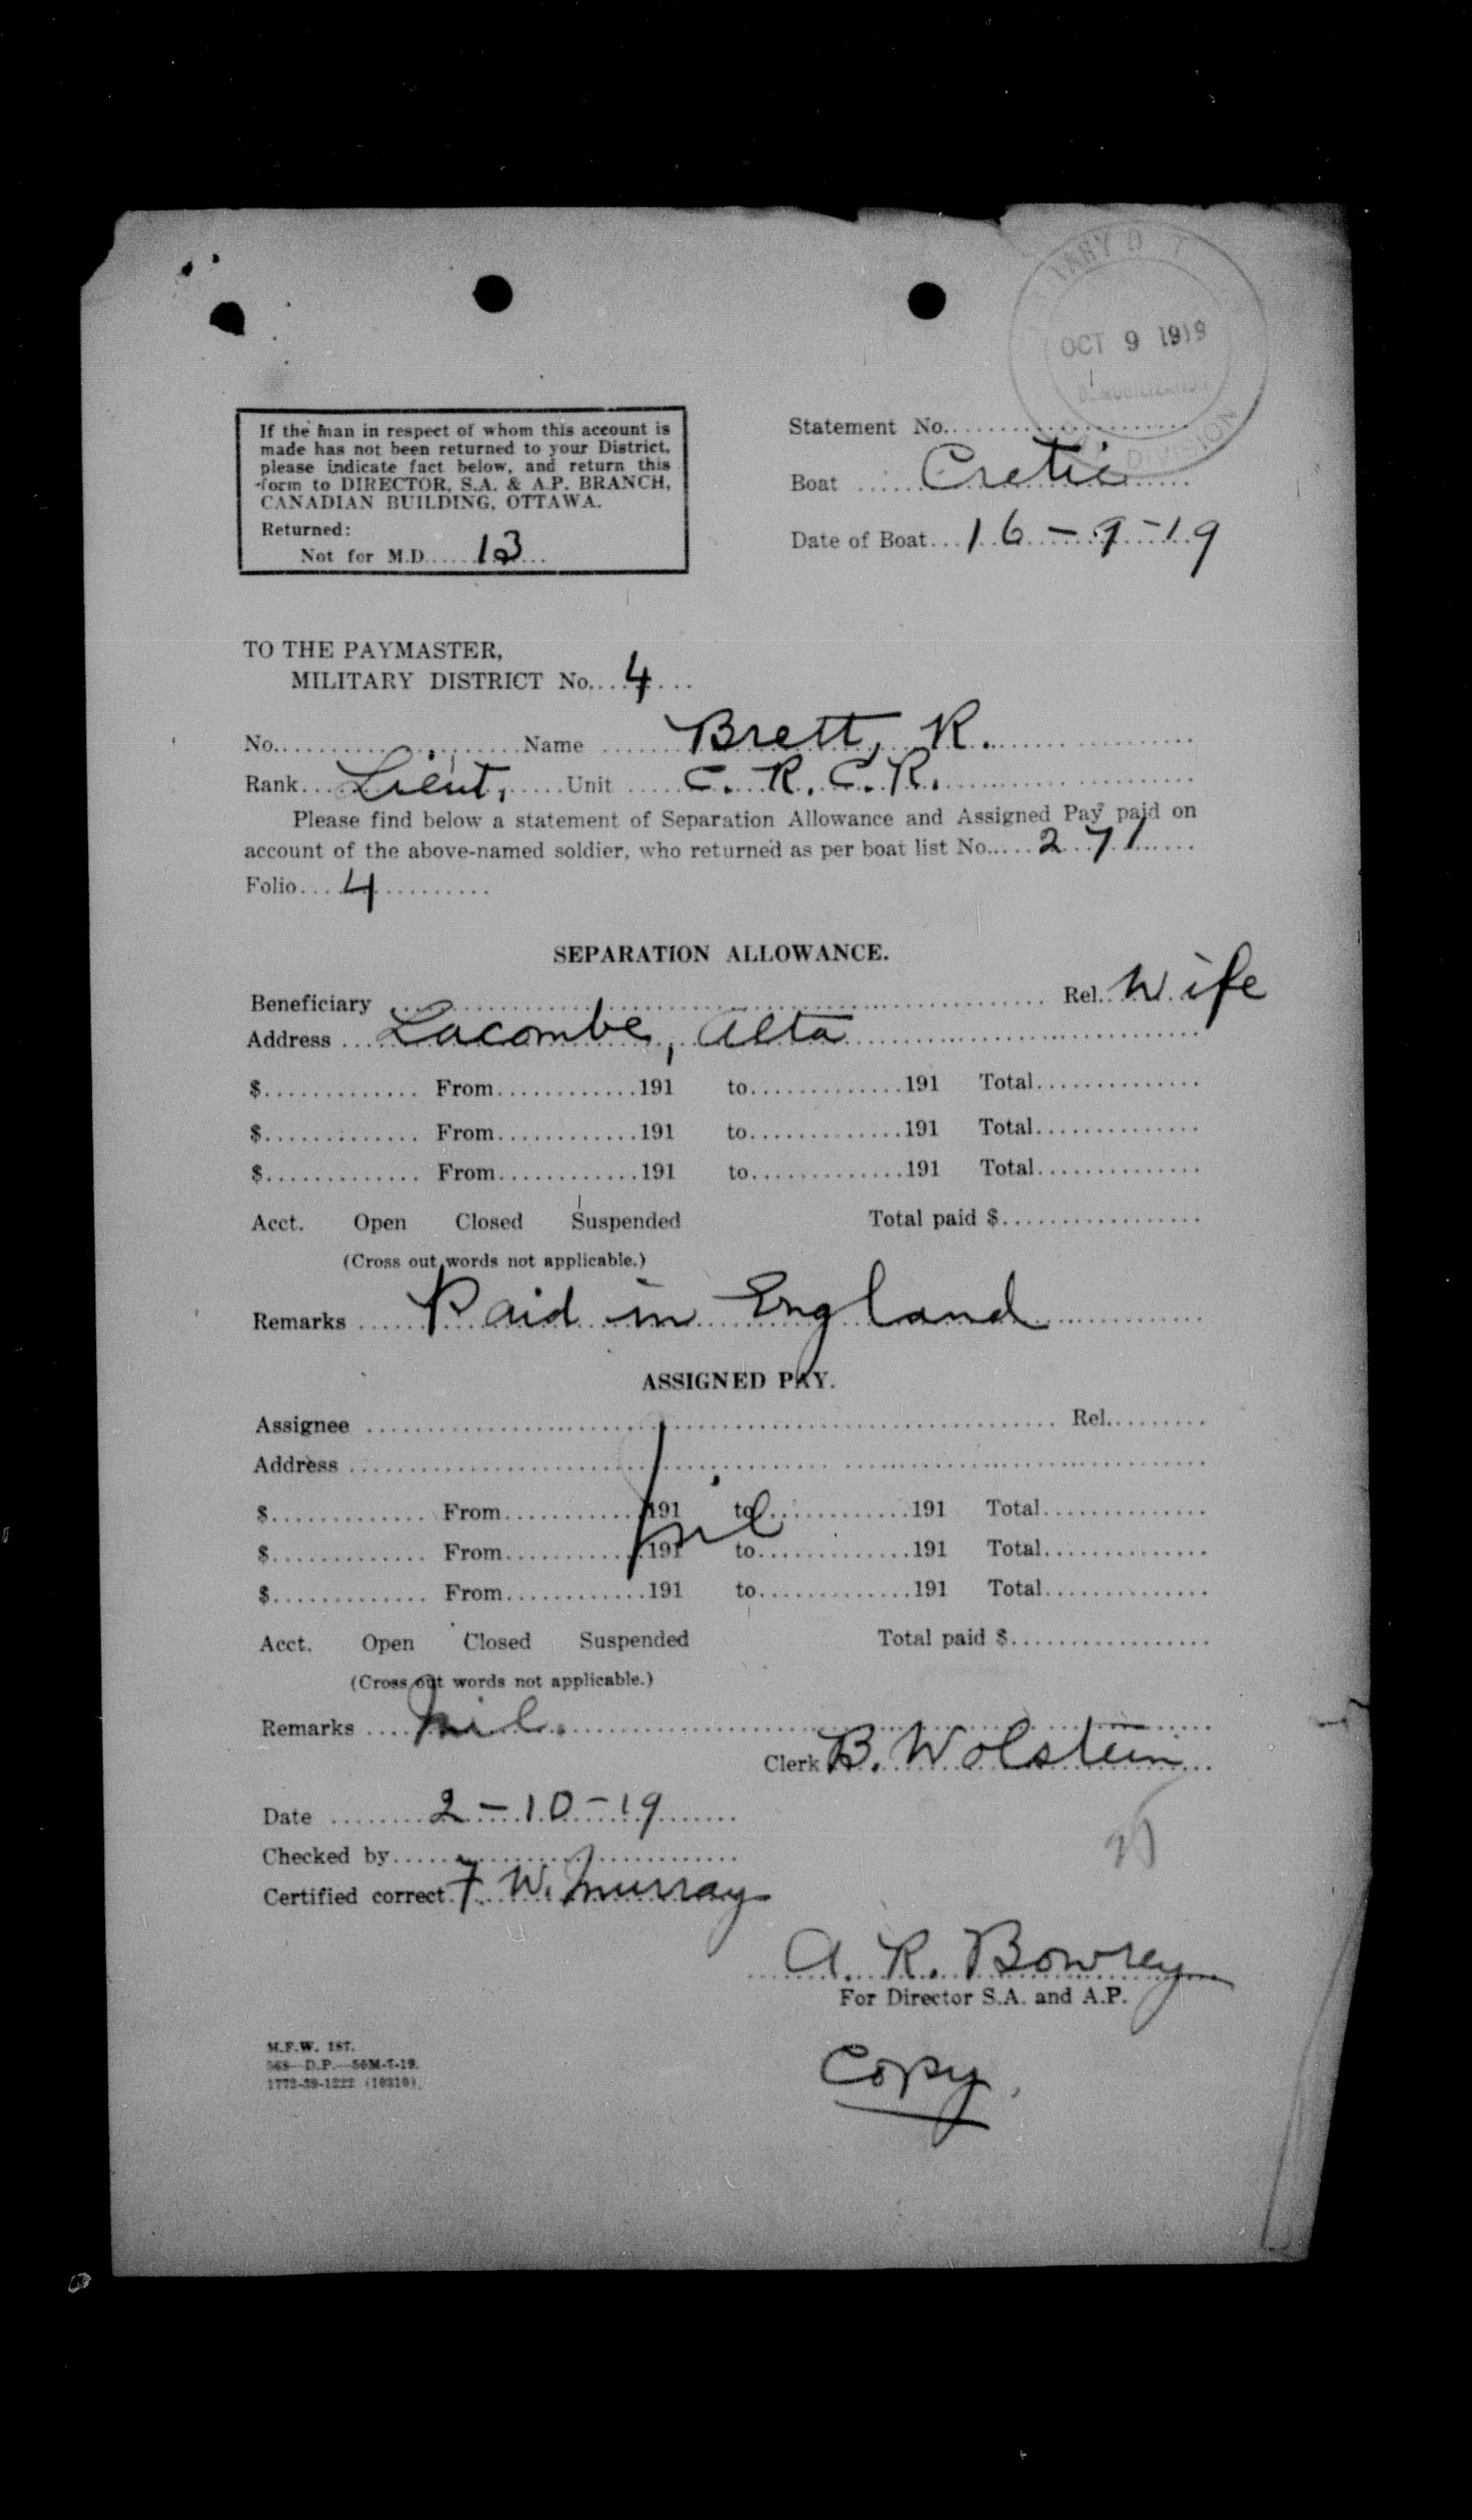 OCT 9 1919
DIVISION
If the man in respect of whom this account is
made has not been returned to your District,
please indicate fact below, and return this
form to DIRECTOR, S.A. & A.P. BRANCH,
CANADIAN BUILDING, OTTAWA.
Returned:
Not for M.D. 13
Statement No.
Boat Cretic
Date of Boat 16-9-19
TO THE PAYMASTER,
MILITARY DISTRICT No. 4
No. Name Brett, R.
Rank Lieut, Unit C. R. C. R.
Please find below a statement of Separation Allowance and Assigned Pay paid on
account of the above-named soldier, who returned as per boat list No. 271
Folio 4
SEPARATION ALLOWANCE.
Beneficiary Rel. Wife
Address Lacombe, Alta
$ From 191 to 191 Total
$ From 191 to 191 Total
$ From 191 to 191 Total
Acct. Open Closed Suspended Total paid $
(Cross out words not applicable.)
Remarks Paid in England
ASSIGNED PAY.
Assignee Rel.
Address
$ From 191 to 191 Total
nil
$ From 191 to 191 Total
$ From 191 to 191 Total
Acct. Open Closed Suspended Total paid $
(Cross out words not applicable.)
Remarks nil.
Clerk B. Wolstein
Date 2-10-19
Checked by
Certified correct F. W. Murray
A. R. Bowrey
For Director S.A. and A.P.
M.F.W. 187.
568-D.P.-50M-7-19.
1772-39-1222 (10310).
Copy